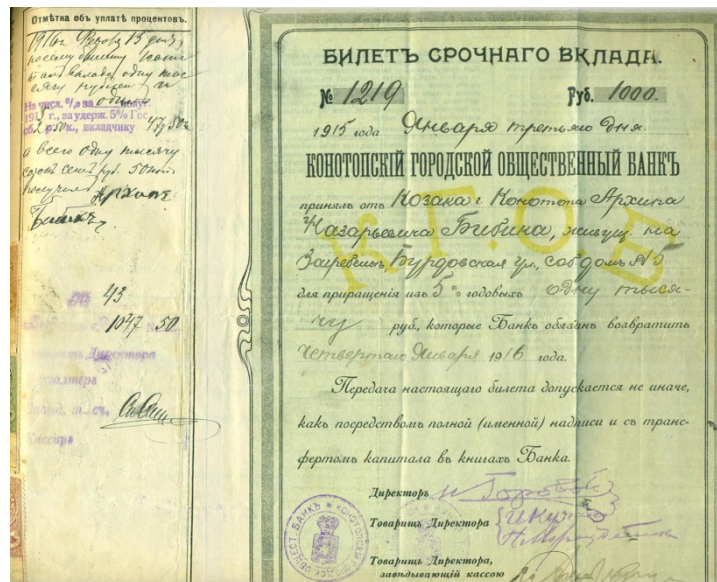 Отмѣтка объ уплатѣ процентовъ.
1916 г. 13 дня,
по сему билету
одну тыс
сячу рублей и
На числ. % за
191 г., за удерж. 5% Гос
сб. 2 р. 50 к., вкладчику 47 р. 50 к.
а всего одну тысячу
сорокъ семь руб. 50 коп
получилъ Архипъ
Бибикъ
43
1047 50
Директора
Кассиръ
БИЛЕТЪ СРОЧНАГО ВКЛАДА.
№ 1219 Руб. 1000.
1915 года Января третьяго дня.
КОНОТОПСКІЙ ГОРОДСКОЙ ОБЩЕСТВЕННЫЙ БАНКЪ
К.Г.О.Б
принялъ отъ Козака г. Конотопа Архипа
Назарьевича Бибика, живущ. на
Бурдовская ул., соб. домъ № 5
для приращенія изъ 5% годовыхъ одну тыся-
чу руб., которые Банкъ обязанъ возвратить
четвертаго Января 1916 года.
Передача настоящаго билета допускается не иначе,
какъ посредствомъ полной (именной) надписи и съ транс-
фертомъ капитала въ книгахъ Банка.
Директоръ
Товарищъ Директора
Товарищъ Директора,
завѣдывающій кассою
КОНОТОПСКІЙ ГОРОДСК. ОБЩЕСТ. БАНКЪ